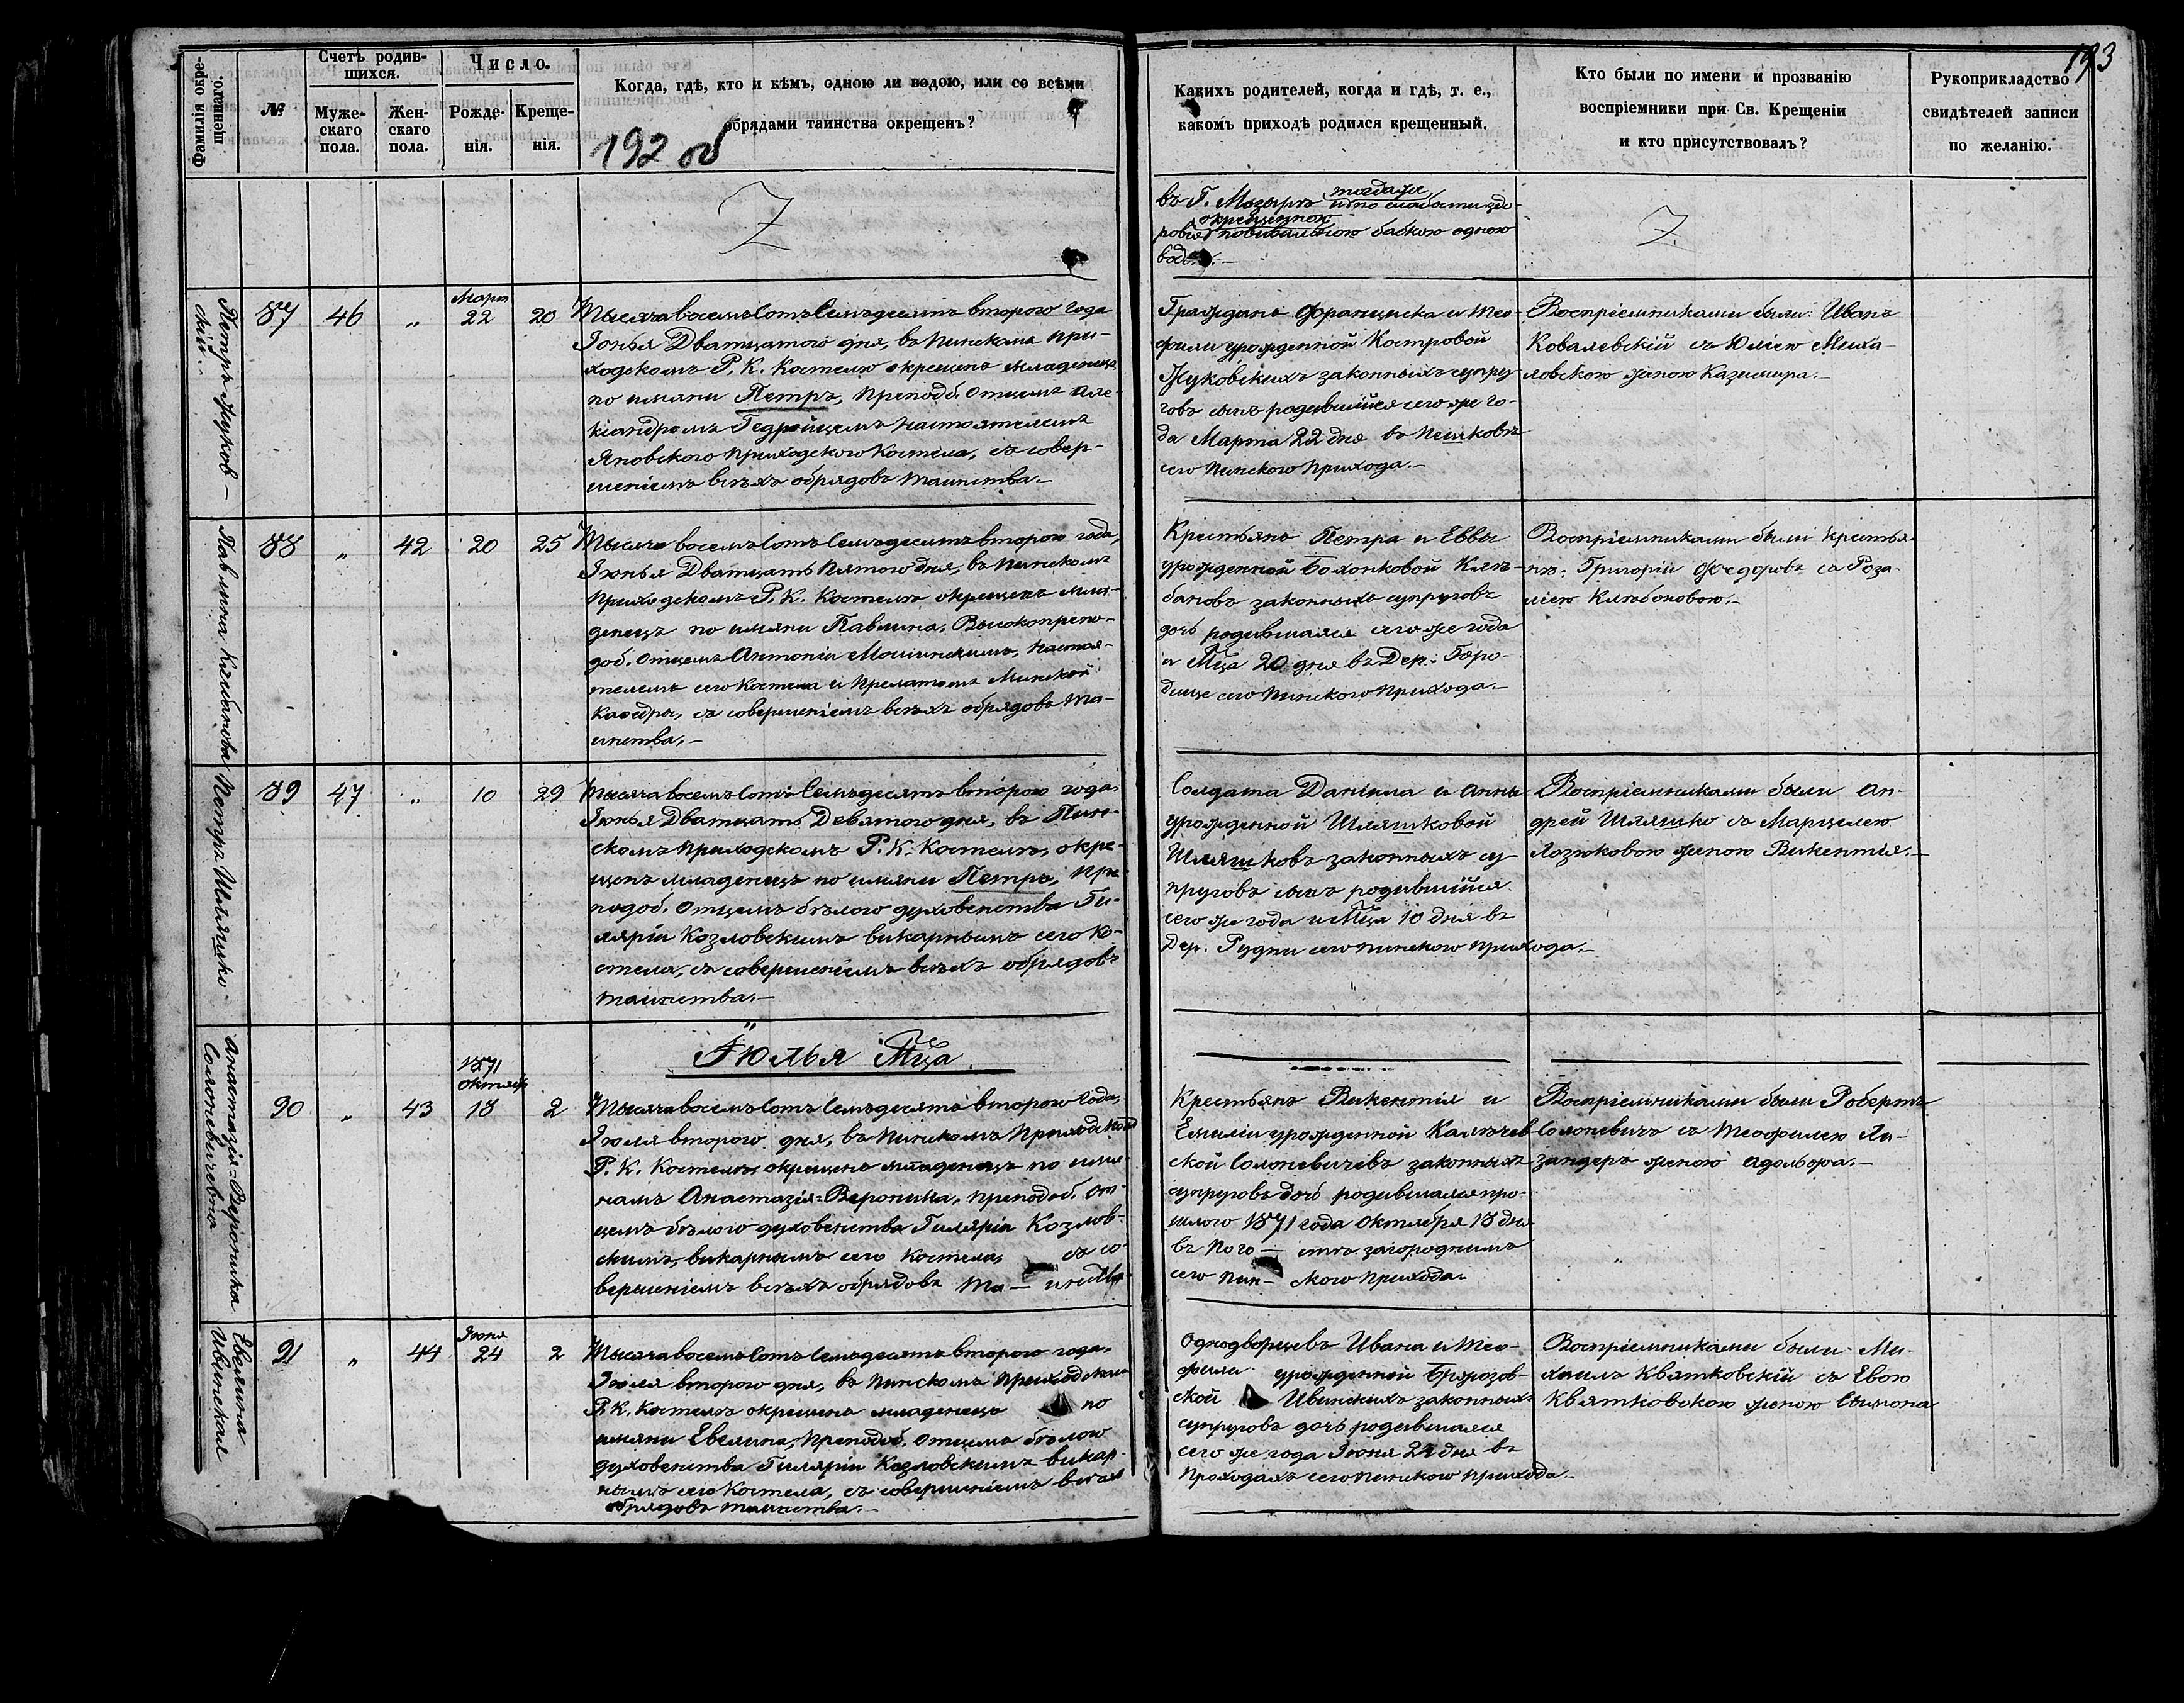 193
Фамилія окре-
щеннаго.
№
Счетъ родив-
шихся.
Муже-
скаго
пола.
Жен-
скаго
пола.
Число.
Рожде-
нія.
Креще-
нія.
Когда, гдѣ, кто и кѣмъ, одною ли водою, или со всѣми
обрядами таинства окрещенъ?
192 об
Какихъ родителей, когда и гдѣ, т. е.,
какомъ приходѣ родился крещенный.
Кто были по имени и прозванію
воспріемники при Св. Крещеніи
и кто присутствовалъ?
Рукоприкладство
свидѣтелей записи
по желанію.
Z
въ Г. Мозырѣ тогдаже и по слабости здо-
ровія окрещенною повивальною бабкою одною
Z
Петръ Жуков-
скій.
87
46
„
Март
22
20
Тысяча восемь сотъ семьдесятъ второго года
Іюнья Дватцатого дня, въ Пинскомъ при-
ходскомъ Р. К. Костелѣ окрещенъ младенецъ
по имяни Петръ, Преподоб. Отцемъ Але-
ксандромъ Гедройцемъ настоятелемъ
Яновского приходского Костела, съ совер-
шеніемъ всѣхъ обрядовъ таинства.—
Гражданъ Францишка и Тео-
фили урожденной Костровой
Жуковскихъ законныхъ супру-
говъ сынъ родившійся сего же го-
да Марта 22 дня въ Пешковѣ
сего Пинского Прихода.—
Воспріемниками были: Иванъ
Ковалевскій съ Юліею Миха-
ловскою женою Казимира.—
Павлина Клибанова
88
„
42
20
25
Тысяча восемь сотъ семьдесятъ второго года,
Іюнья Дватцать Пятого дня, въ Пинскомъ
Приходскомъ Р. К. Костелѣ окрещенъ мла-
денецъ по имяни Павлина, Высокопрепо-
доб. отцемъ Антоніи Мошинскимъ, настоя-
телемъ сего Костела и Прелатомъ Минской
Кафедры, съ совершеніемъ всѣхъ обрядовъ та-
инства.—
Крестьянъ Петра и Еввы
урожденной
законныхъ супруговъ
дочь родившаяся сего же года
и Мца 20 дня въ Дер: Горо-
дище сего Пинского Прихода.—
Воспріемниками были крестья-
нъ: Григорій Федоровъ съ Роза-
ліею
Петръ Шляшко
89
47
„
10
29
Тысяча восемь сотъ Семьдесятъ второго года
Іюнья Дватцать Девятого дня, въ Пин-
скомъ приходскомъ Р. К. Костелѣ, окре-
щенъ младенецъ по имяни Петръ, Пре-
подоб. Отцемъ бѣлого духовенства Ги-
ляріи Козловскимъ викарнымъ сего Ко-
стела, съ совершеніемъ всѣхъ обрядовъ
таинства.—
Солдата Даніила и Анны
урожденной Шляшковой
Шляшковъ законныхъ су-
пруговъ сынъ родившійся
сего же года и Мца 10 дня въ
Дер. Рудни сего Пинского прихода.—
Воспріемниками были Ан-
дрей Шляшко съ Марцелею
Лозюковою женою Викентія.—
Іюлья Мца
Анастазія-Вероника
Солоневичевна
90
„
43
1871
Октябр
18
2
Тысяча восемь сотъ семьдесятъ второго года,
Іюля второго дня, въ Пинскомъ Приходском
Р. К. Костелѣ окрещенъ младенецъ по име-
намъ Анастазія-Вероника, Преподоб. От-
цемъ бѣлого духовенства Гиляріи Козлов-
скимъ, викарнымъ сего Костела, съ со-
вершеніемъ всѣхъ обрядовъ та— инства
Крестьянъ Викентія и
Емиліи урожденной Калѣчев-
ской Солоневичевъ законныхъ
супруговъ дочь родившаяся про-
шлого 1871 года Октября 18 дня
въ Пого— стѣ загородномъ
сего Пин— ского Прихода.
Воспріемниками были Робертъ
Солоневичъ съ Теофилею Ли-
зандеръ женою Адольфа.—
Евелина
Ивинская
91
„
44
Іюня
24
2
Тысяча восемь сотъ семьдесятъ второго года,
Іюля второго дня, въ Пинскомъ Приходском
Р. К. Костелѣ окрещена младенецъ по
имяни Евелина, Преподоб. Отцемъ бѣлого
духовенства Гиляріи Козловскимъ викар-
нымъ сего Костела, съ совершеніемъ всѣхъ
обрядовъ таинства.—
Однодворцевъ Ивана и Тео-
фили урожденной Бржозов-
ской Ивинскихъ законныхъ
супруговъ дочь родившаяся
сего же года Іюня 24 дня въ
Проходахъ сего Пинского прихода.—
Воспріемниками были Ми-
хаилъ Квятковскій съ Евою
Квятковскою женою Симона